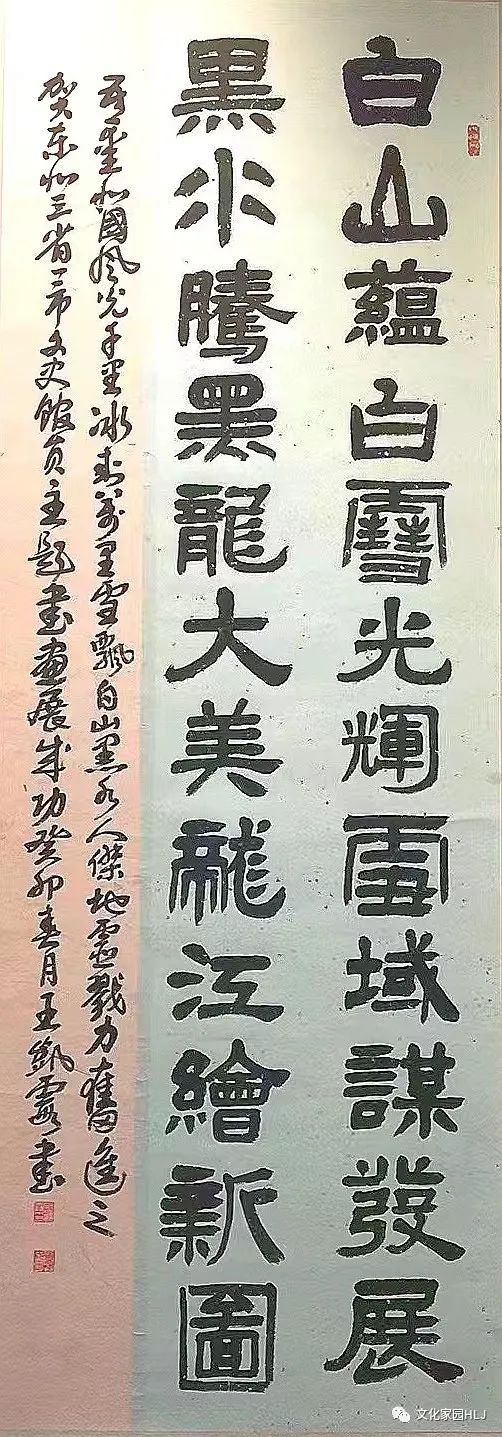 白山蘊白雪光輝雪域謀發展
黑水騰黑龍大美龍江繪新圖
吾愛北國風光千里冰封萬里雪飄白山黑水人傑地靈戮力奮進之
賀東北三省一市文史館員主題書畫展成功癸卯春月王凱霞書
文化家园HLJ